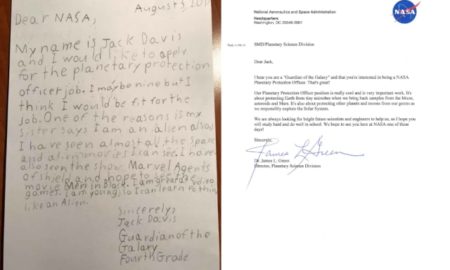 August 3, 201
Dear NASA,
My name is Jack Davis
and I would like to apply
for the planetary protection
officer job. I may be nine but I
think I would be fit for the
job. One of the reasons is my
sister says I am an alien also
I have seen almost all the space
and alien movies I can see. I have
also seen the show Marvel Agents
of shield and hope to see the
movie Men in Black. I am great at video
games. I am young, so I can learn to think
like an Alien.
Sincerely,
Jack Davis
Guardian of the
Galaxy
Fourth Grade
National Aeronautics and Space Administration
Headquarters
Washington, DC 20546-0001
NASA
SMD/Planetary Science Division
Dear Jack,
I hear you are a "Guardian of the Galaxy" and that you're interested in being a NASA
Planetary Protection Officer. That's great!
Our Planetary Protection Officer position is really cool and is very important work. It's
about protecting Earth from tiny microbes when we bring back samples from the Moon,
asteroids and Mars. It's also about protecting other planets and moons from our germs as
we responsibly explore the Solar System.
We are always looking for bright future scientists and engineers to help us, so I hope you
will study hard and do well in school. We hope to see you here at NASA one of these
days!
James L Green
Dr. James L. Green
Director, Planetary Science Division